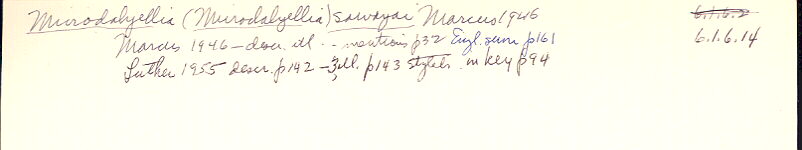 Microdalyellia (Microdalyellia) sawayai Marcus 1946 6.1.6.2
Marcus 1946 – descr. ill. -- mentions p32 Engl. summ p161 6.1.6.14
Luther 1955 descr. p142 – 3 ill. p143 stylets. in key p94